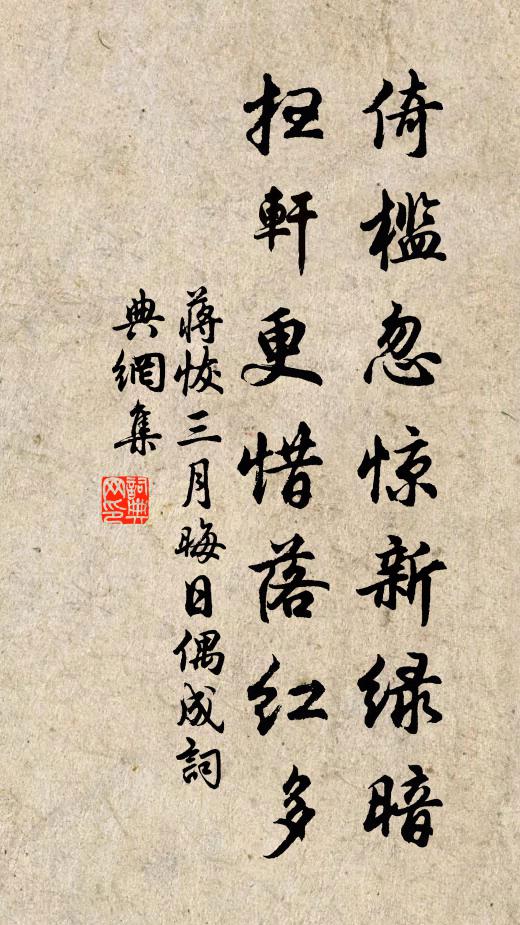 倚槛忽惊新绿暗
扫軒更惜落红多
蒋恢三月晦日偶成詞
典網集
詞典
网印